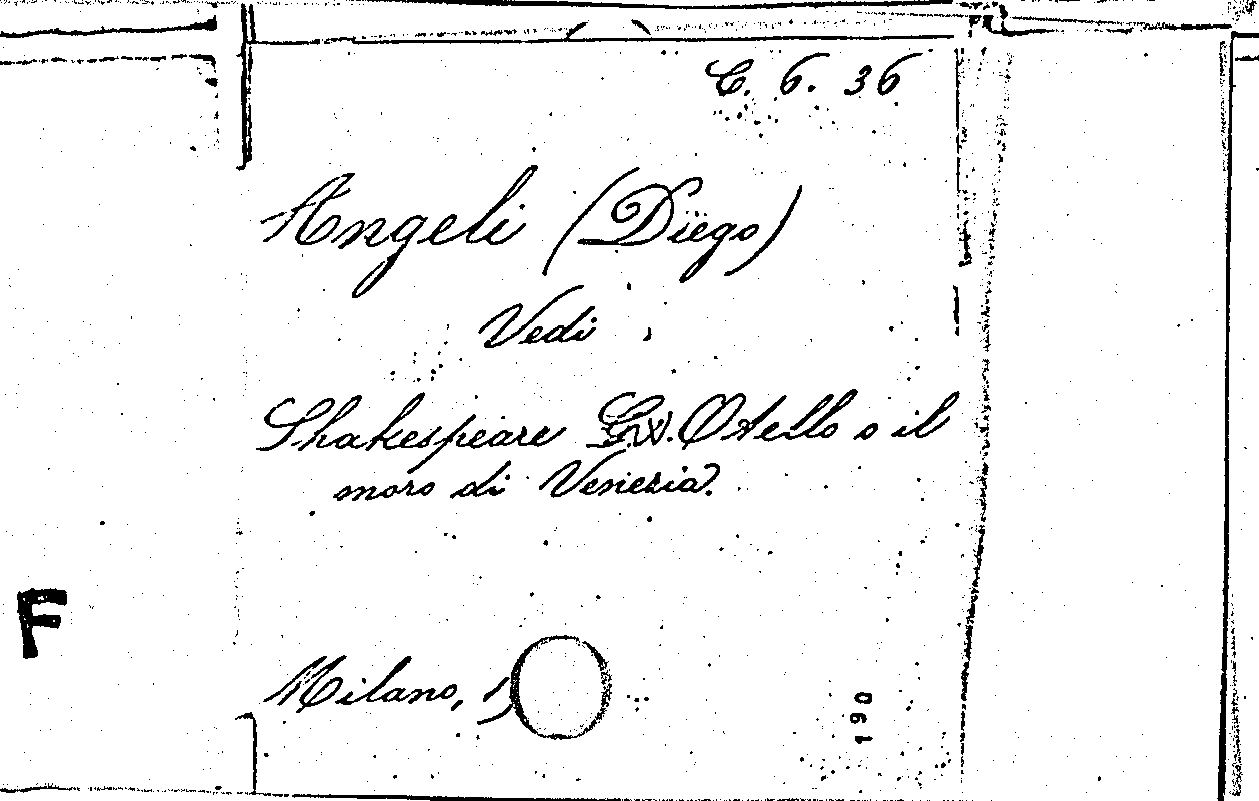 C. 6. 36
Angeli (Diego)
Vedi
Shakespeare G.W. Otello o il
moro di Venezia.
F
Milano,
190